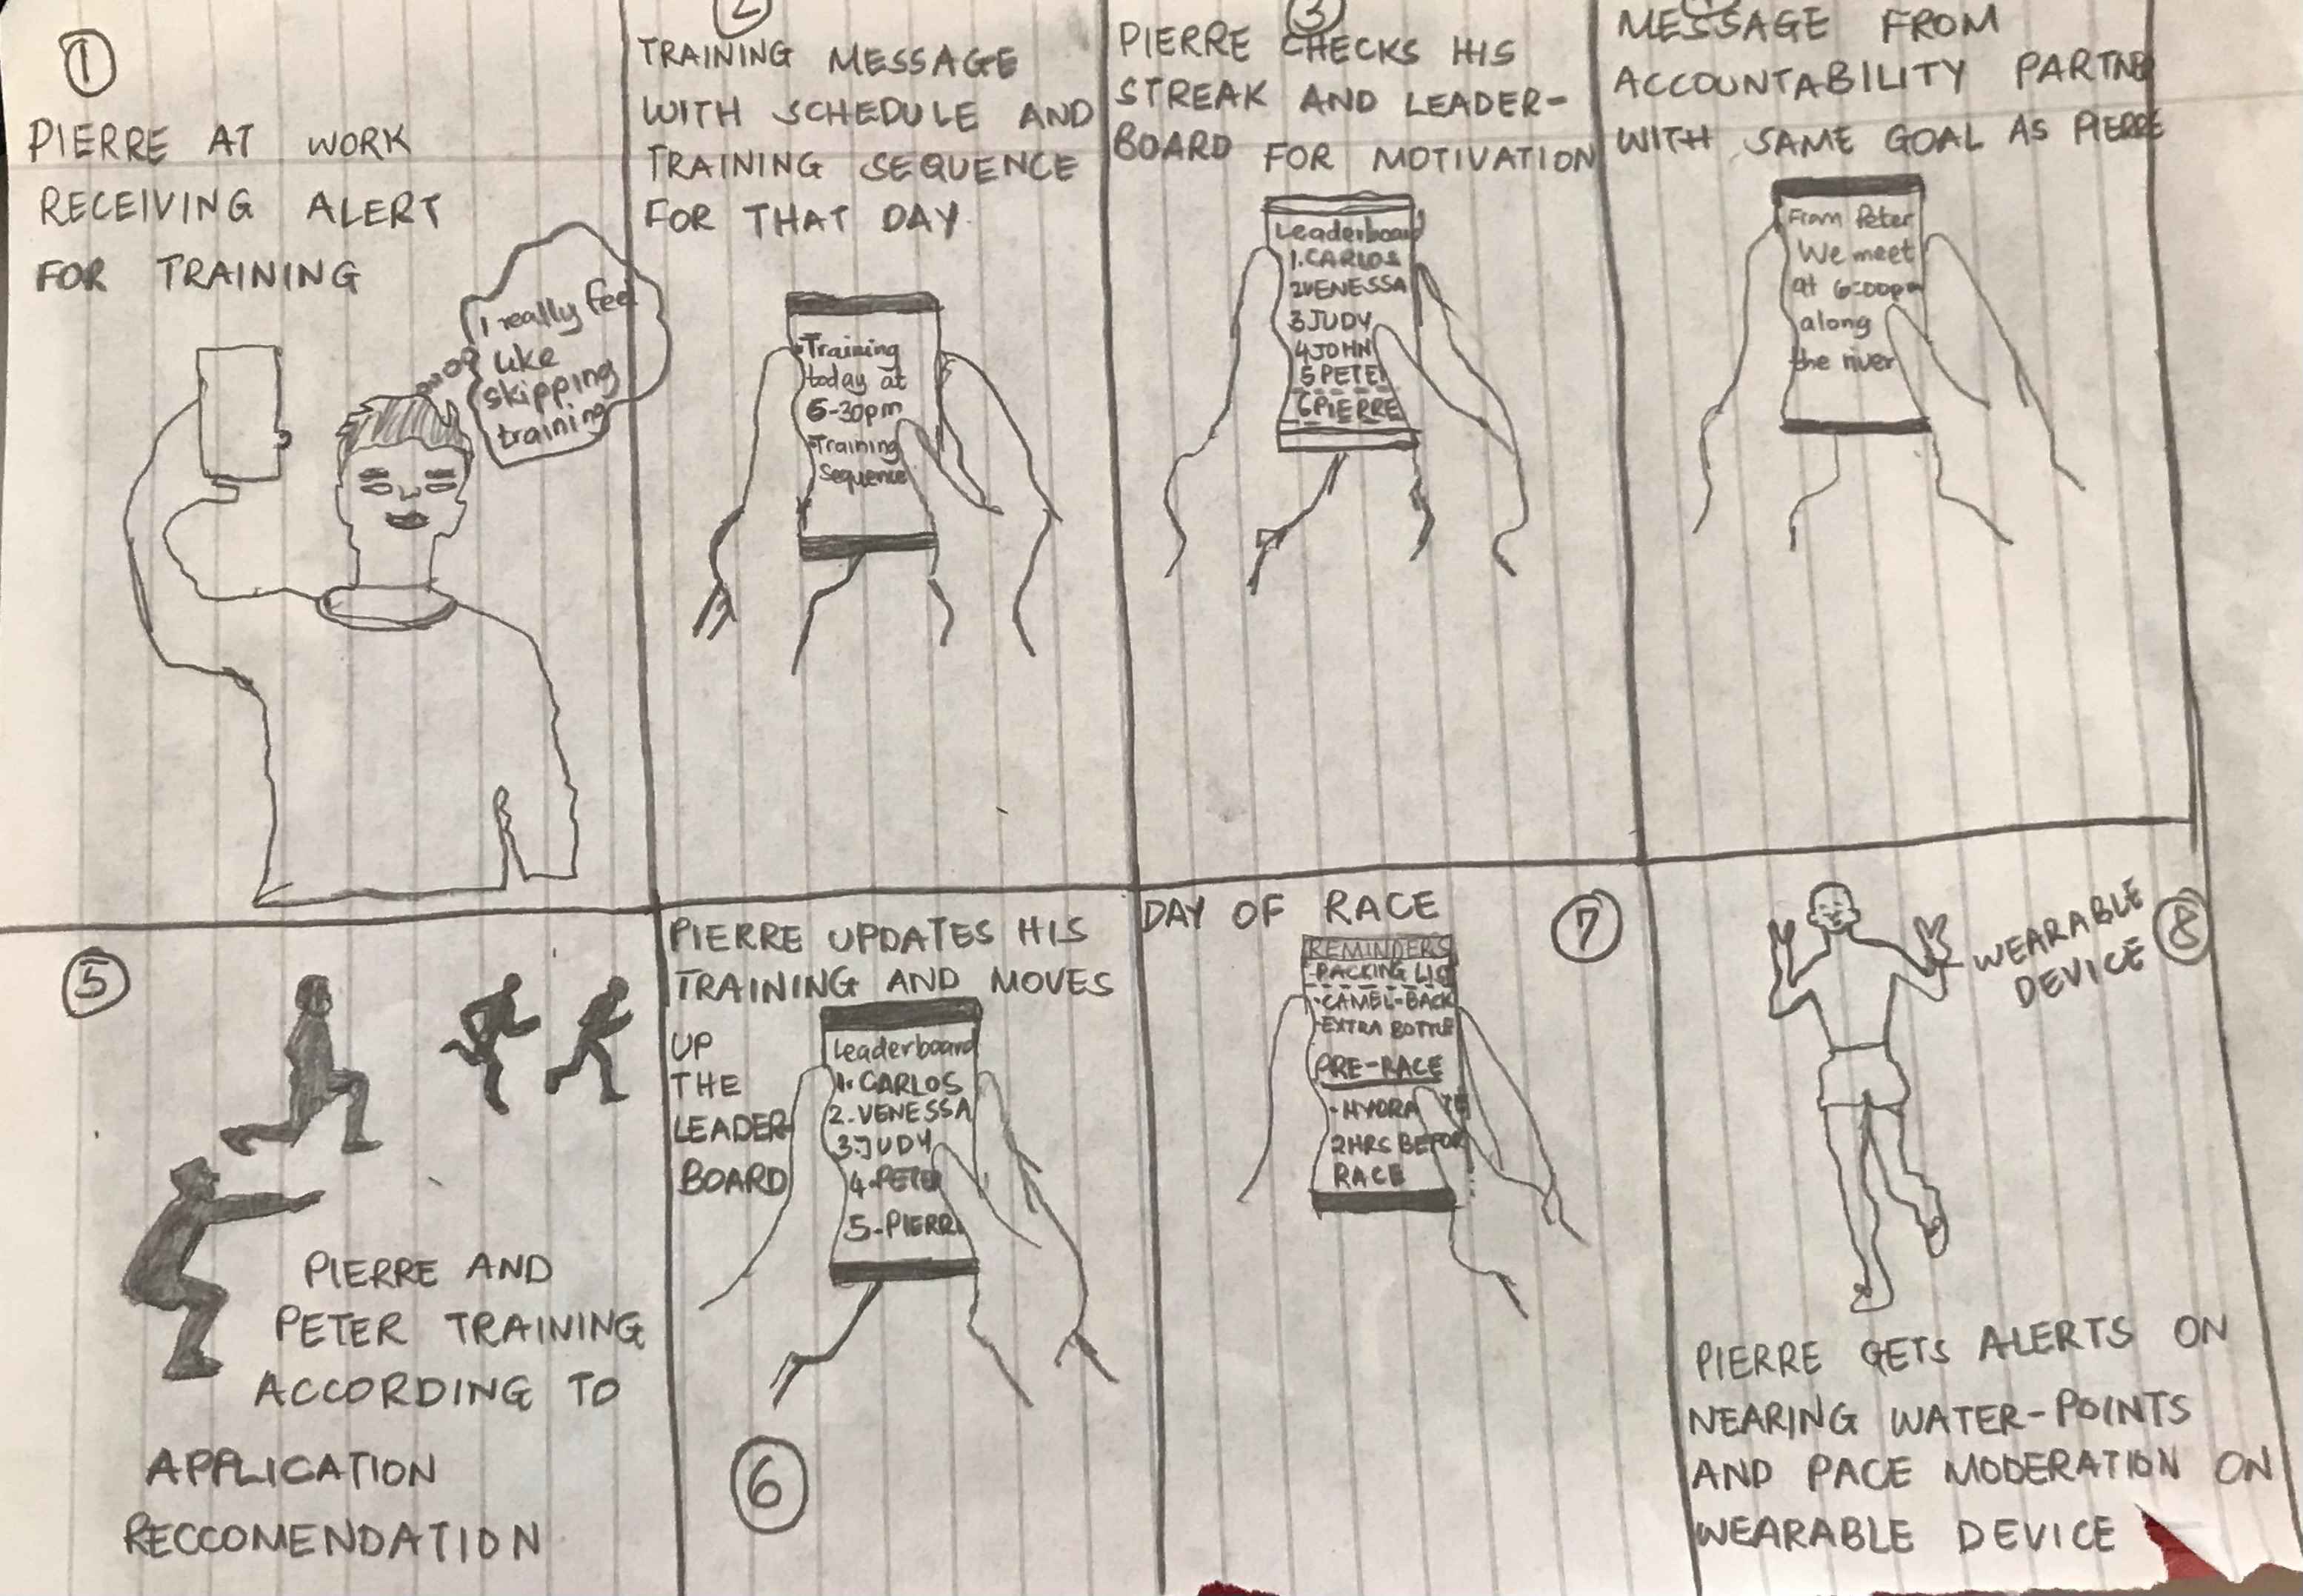 1
PIERRE AT WORK
RECEIVING ALERT
FOR TRAINING
I really feel
like
skipping
training
2
TRAINING MESSAGE
WITH SCHEDULE AND
TRAINING SEQUENCE
FOR THAT DAY
•Training
today at
6-30pm
•Training
Sequence
3
PIERRE CHECKS HIS
STREAK AND LEADER-
BOARD FOR MOTIVATION
Leaderboard
1.CARLOS
2VENESSA
3JUDY
4JOHN
5 PETER
6PIERRE
MESSAGE FROM
ACCOUNTABILITY PARTNER
WITH SAME GOAL AS PIERRE
From Peter
We meet
at 6:00pm
along
the river
5
PIERRE AND
PETER TRAINING
ACCORDING TO
APPLICATION
RECCOMENDATION
PIERRE UPDATES HIS
TRAINING AND MOVES
UP
THE
LEADER
BOARD
Leaderboard
1. CARLOS
2.VENESSA
3.JUDY
4.PETER
5-PIERRE
6
DAY OF RACE
7
REMINDERS
-PACKING LIST
•CAMEL-BACK
-EXTRA BOTTLE
PRE-RACE
-HYDRATE
2HRS BEFORE
RACE
WEARABLE
DEVICE
8
PIERRE GETS ALERTS ON
NEARING WATER-POINTS
AND PACE MODERATION ON
WEARABLE DEVICE